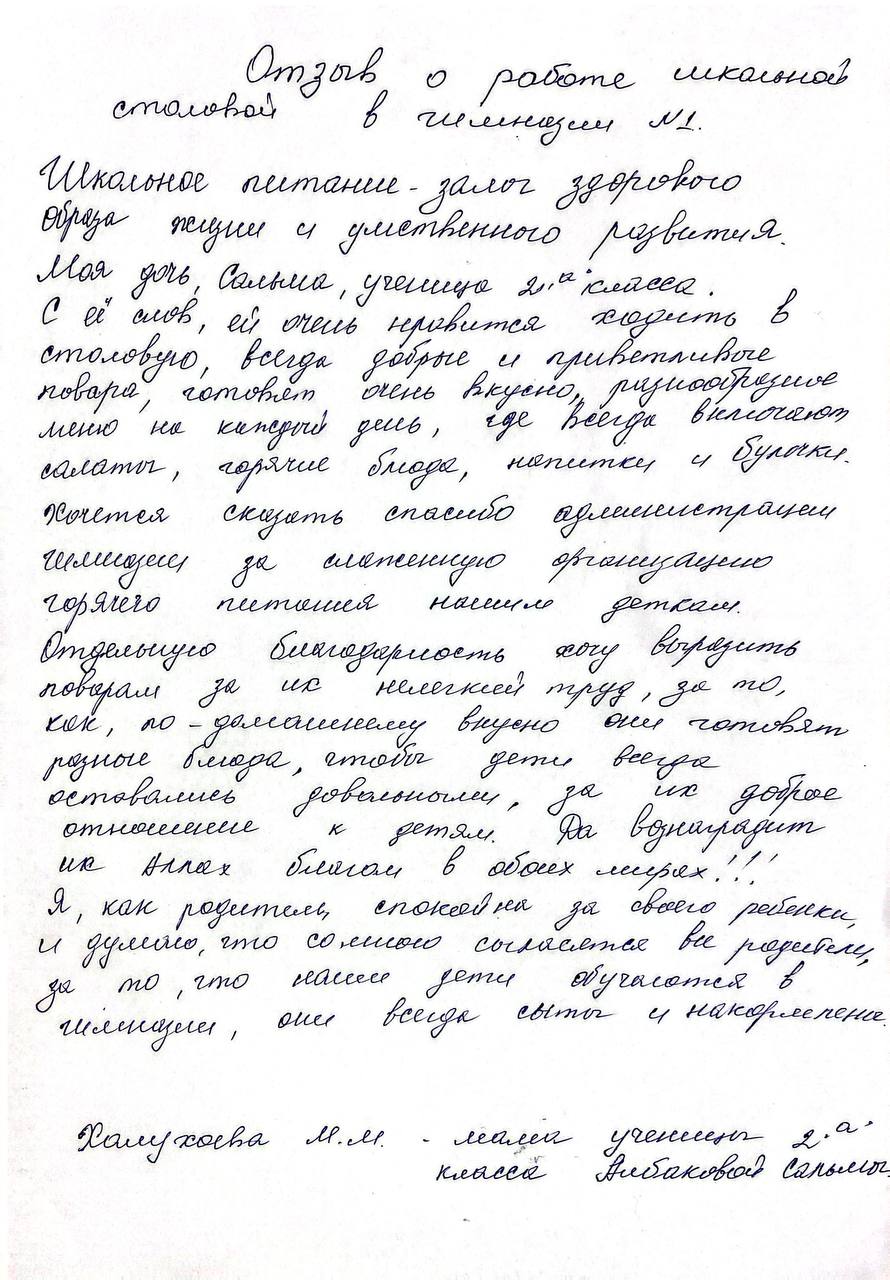 Отзыв о работе школьной
столовой в гимназии №1.
Школьное питание - залог здорового
образа жизни и умственного развития.
Моя дочь, Сальма, ученица 2 "а" класса.
С её слов, ей очень нравится ходить в
столовую, всегда добрые и приветливые
повара, готовят очень вкусно, разнообразное
меню на каждый день, где всегда включают
салаты, горячие блюда, напитки и булочки.
Хочется сказать спасибо администрации
гимназии за слаженную организацию
горячего питания нашим деткам.
Отдельную благодарность хочу выразить
поварам за их нелегкий труд, за то,
как, по-домашнему вкусно они готовят
разные блюда, чтобы дети всегда
оставались довольными, за их доброе
отношение к детям. Да вознаградит
их Аллах благом в обоих мирах!!!
Я, как родитель, спокойна за своего ребенка,
и думаю, что со мною согласятся все родители,
за то, что наши дети обучаются в
гимназии, они всегда сыты и накормлены.
Халухаева М.М. - мама ученицы 2 "а"
класса Албаковой Сальмы.